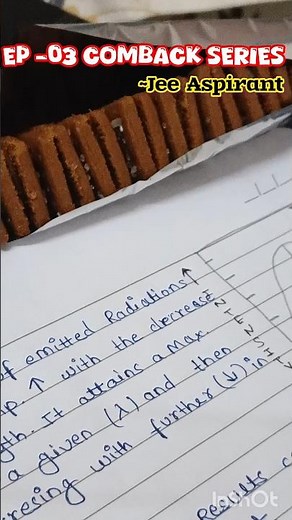 EP -03 COMBACK SERIES
~Jee Aspirant
of emitted Radiations
p. ↑ with the decrease
gth. It attains a max.
a given (λ) and then
resing with further (↓) in
results
INTENSITY
InShOt